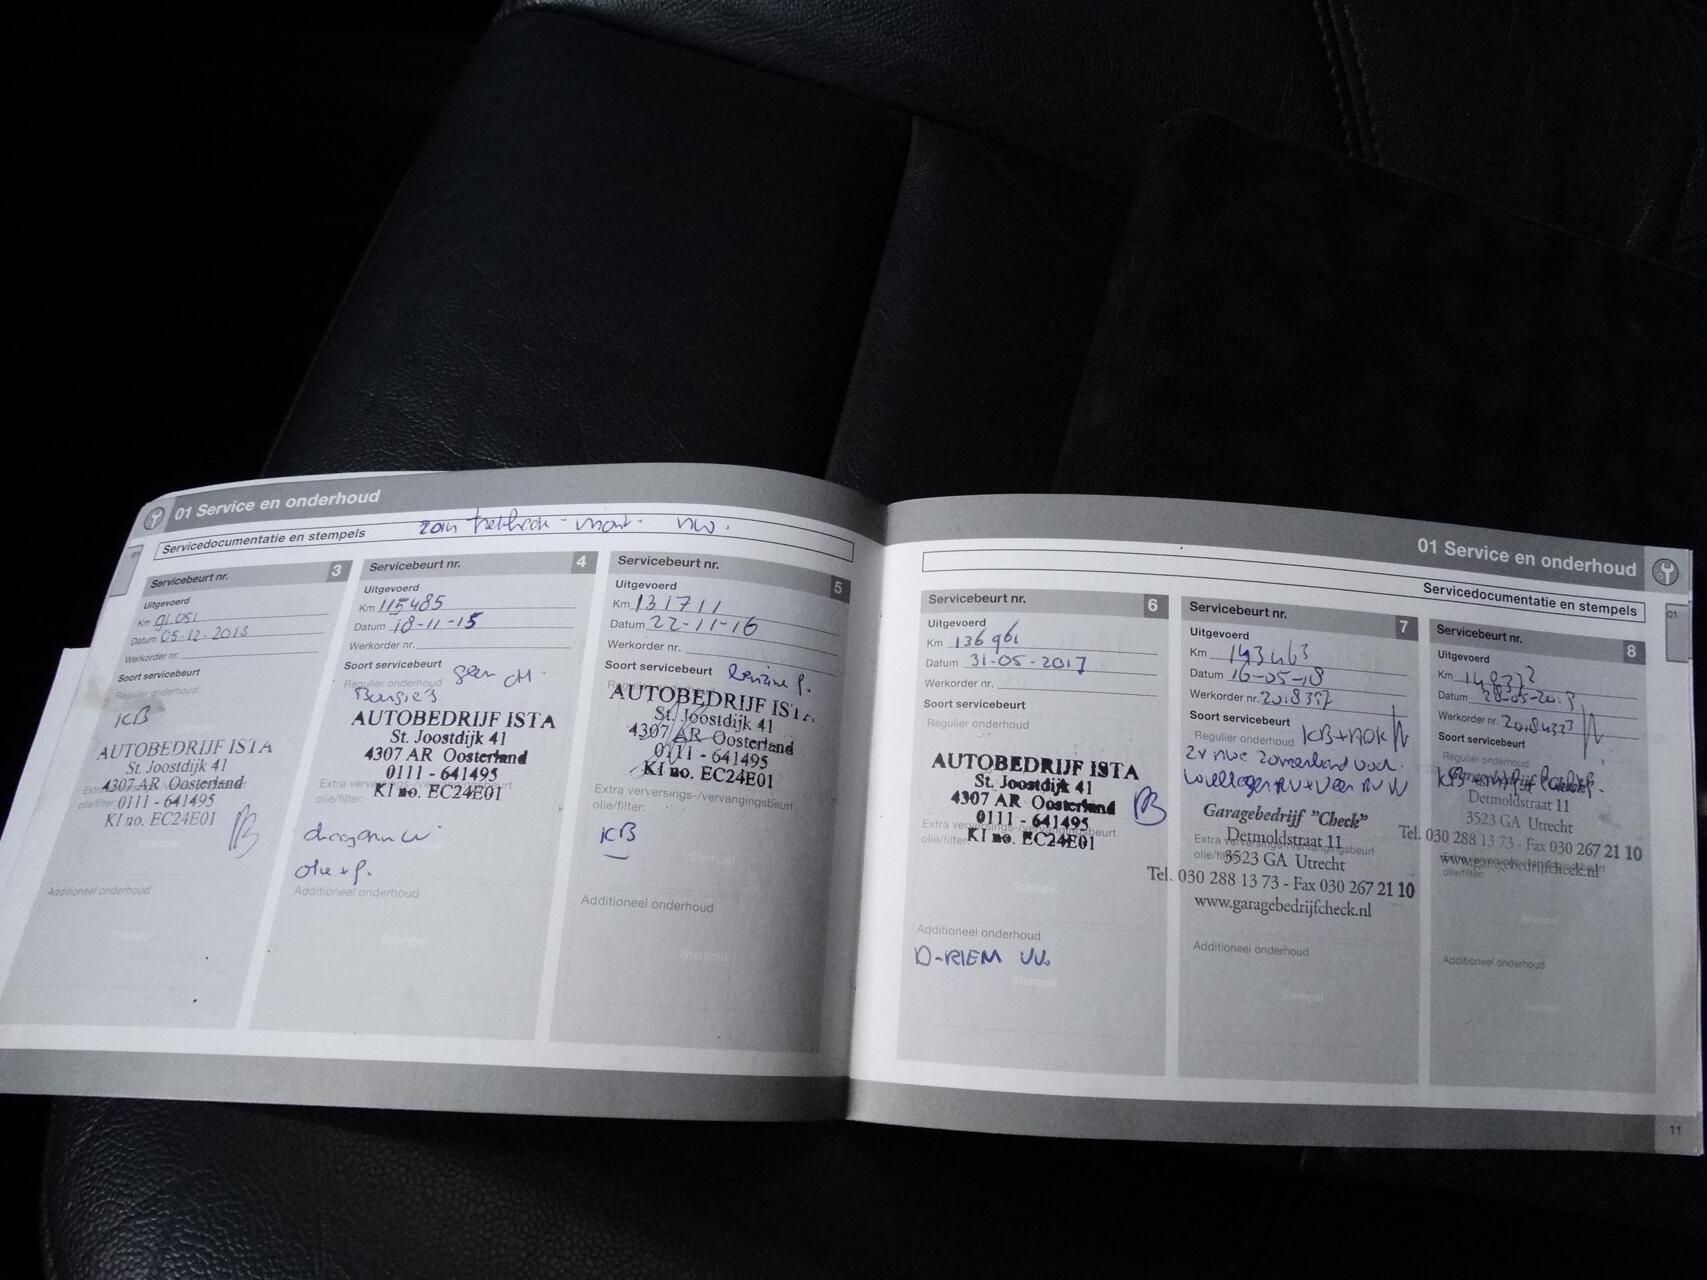 01 Service en onderhoud
Servicedocumentatie en stempels
Servicebeurt nr. 3
Uitgevoerd
Km 91.051
Datum 05-12-2013
Werkorder nr.
Soort servicebeurt
Regulier onderhoud
KB
AUTOBEDRIJF ISTA
St. Joostdijk 41
4307 AR Oosterland
0111 - 641495
KI no. EC24E01
Additioneel onderhoud
Stempel
Servicebeurt nr. 4
Uitgevoerd
Km 115485
Datum 18-11-15
Werkorder nr.
Soort servicebeurt
Regulier onderhoud
Bougie's
AUTOBEDRIJF ISTA
St. Joostdijk 41
4307 AR Oosterland
0111 - 641495
KI no. EC24E01
olie/filter:
Additioneel onderhoud
Stempel
Servicebeurt nr. 5
Uitgevoerd
Km 131711
Datum 22-11-16
Werkorder nr.
Soort servicebeurt
Regulier onderhoud
AUTOBEDRIJF ISTA
St. Joostdijk 41
4307 AR Oosterland
0111 - 641495
KI no. EC24E01
Extra verversings-/vervangingsbeurt
olie/filter:
KB
Stempel
Additioneel onderhoud
Stempel
01 Service en onderhoud
Servicedocumentatie en stempels
Servicebeurt nr. 6
Uitgevoerd
Km 136961
Datum 31-05-2017
Werkorder nr.
Soort servicebeurt
Regulier onderhoud
AUTOBEDRIJF ISTA
St. Joostdijk 41
4307 AR Oosterland
0111 - 641495
KI no. EC24E01
Extra verversings-/vervangingsbeurt
olie/filter:
Stempel
Additioneel onderhoud
D-RIEM VV.
Stempel
Servicebeurt nr. 7
Uitgevoerd
Km 143463
Datum 16-05-18
Werkorder nr. 2018357
Soort servicebeurt
Regulier onderhoud
Garagebedrijf "Check"
Detmoldstraat 11
Extra verversings-/vervangingsbeurt
olie/filter:
3523 GA Utrecht
Tel. 030 288 13 73 - Fax 030 267 21 10
www.garagebedrijfcheck.nl
Additioneel onderhoud
Stempel
Servicebeurt nr. 8
Uitgevoerd
Km
Datum
Werkorder nr.
Soort servicebeurt
Regulier onderhoud
Detmoldstraat 11
3523 GA Utrecht
Tel. 030 288 13 73 - Fax 030 267 21 10
www.garagebedrijfcheck.nl
olie/filter:
Additioneel onderhoud
11